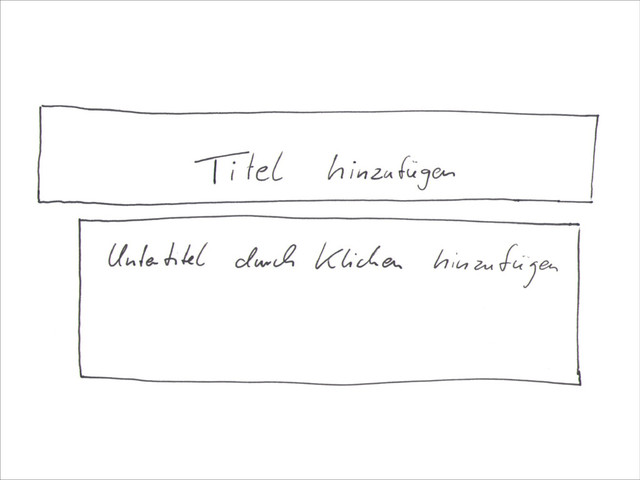 Titel hinzufügen
Untertitel durch Klicken hinzufügen